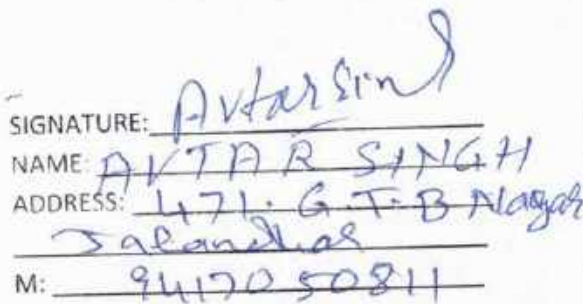 SIGNATURE: Avtar Singh
NAME: AVTAR SINGH
ADDRESS: 471. G.T.B Nagar
Jalandhar
M: 9417050811